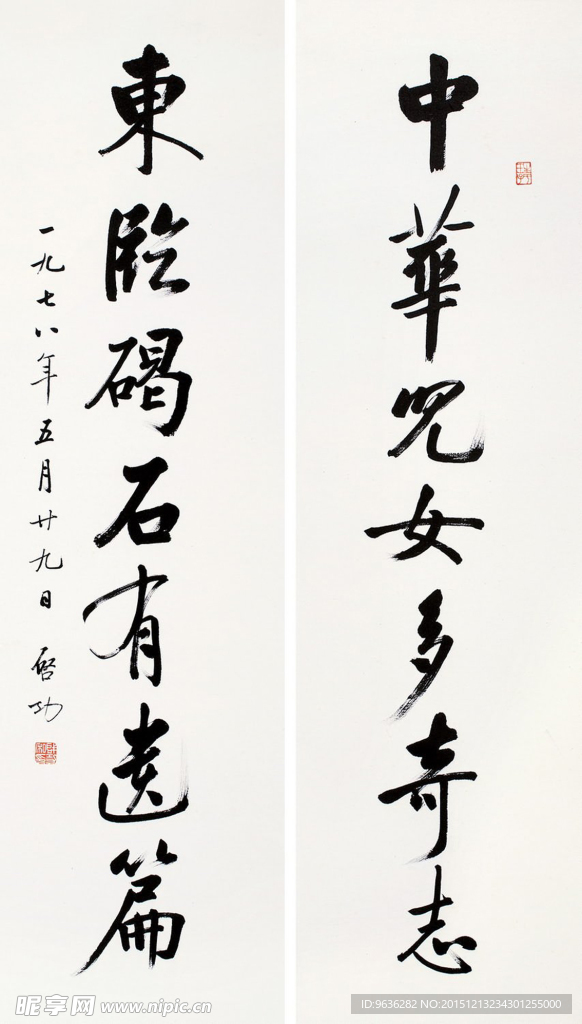 中華兒女多奇志
東臨碣石有遺篇
一九七八年五月廿九日 啓功
昵享网 www.nipic.cn
ID:9636282 NO:20151213234301255000